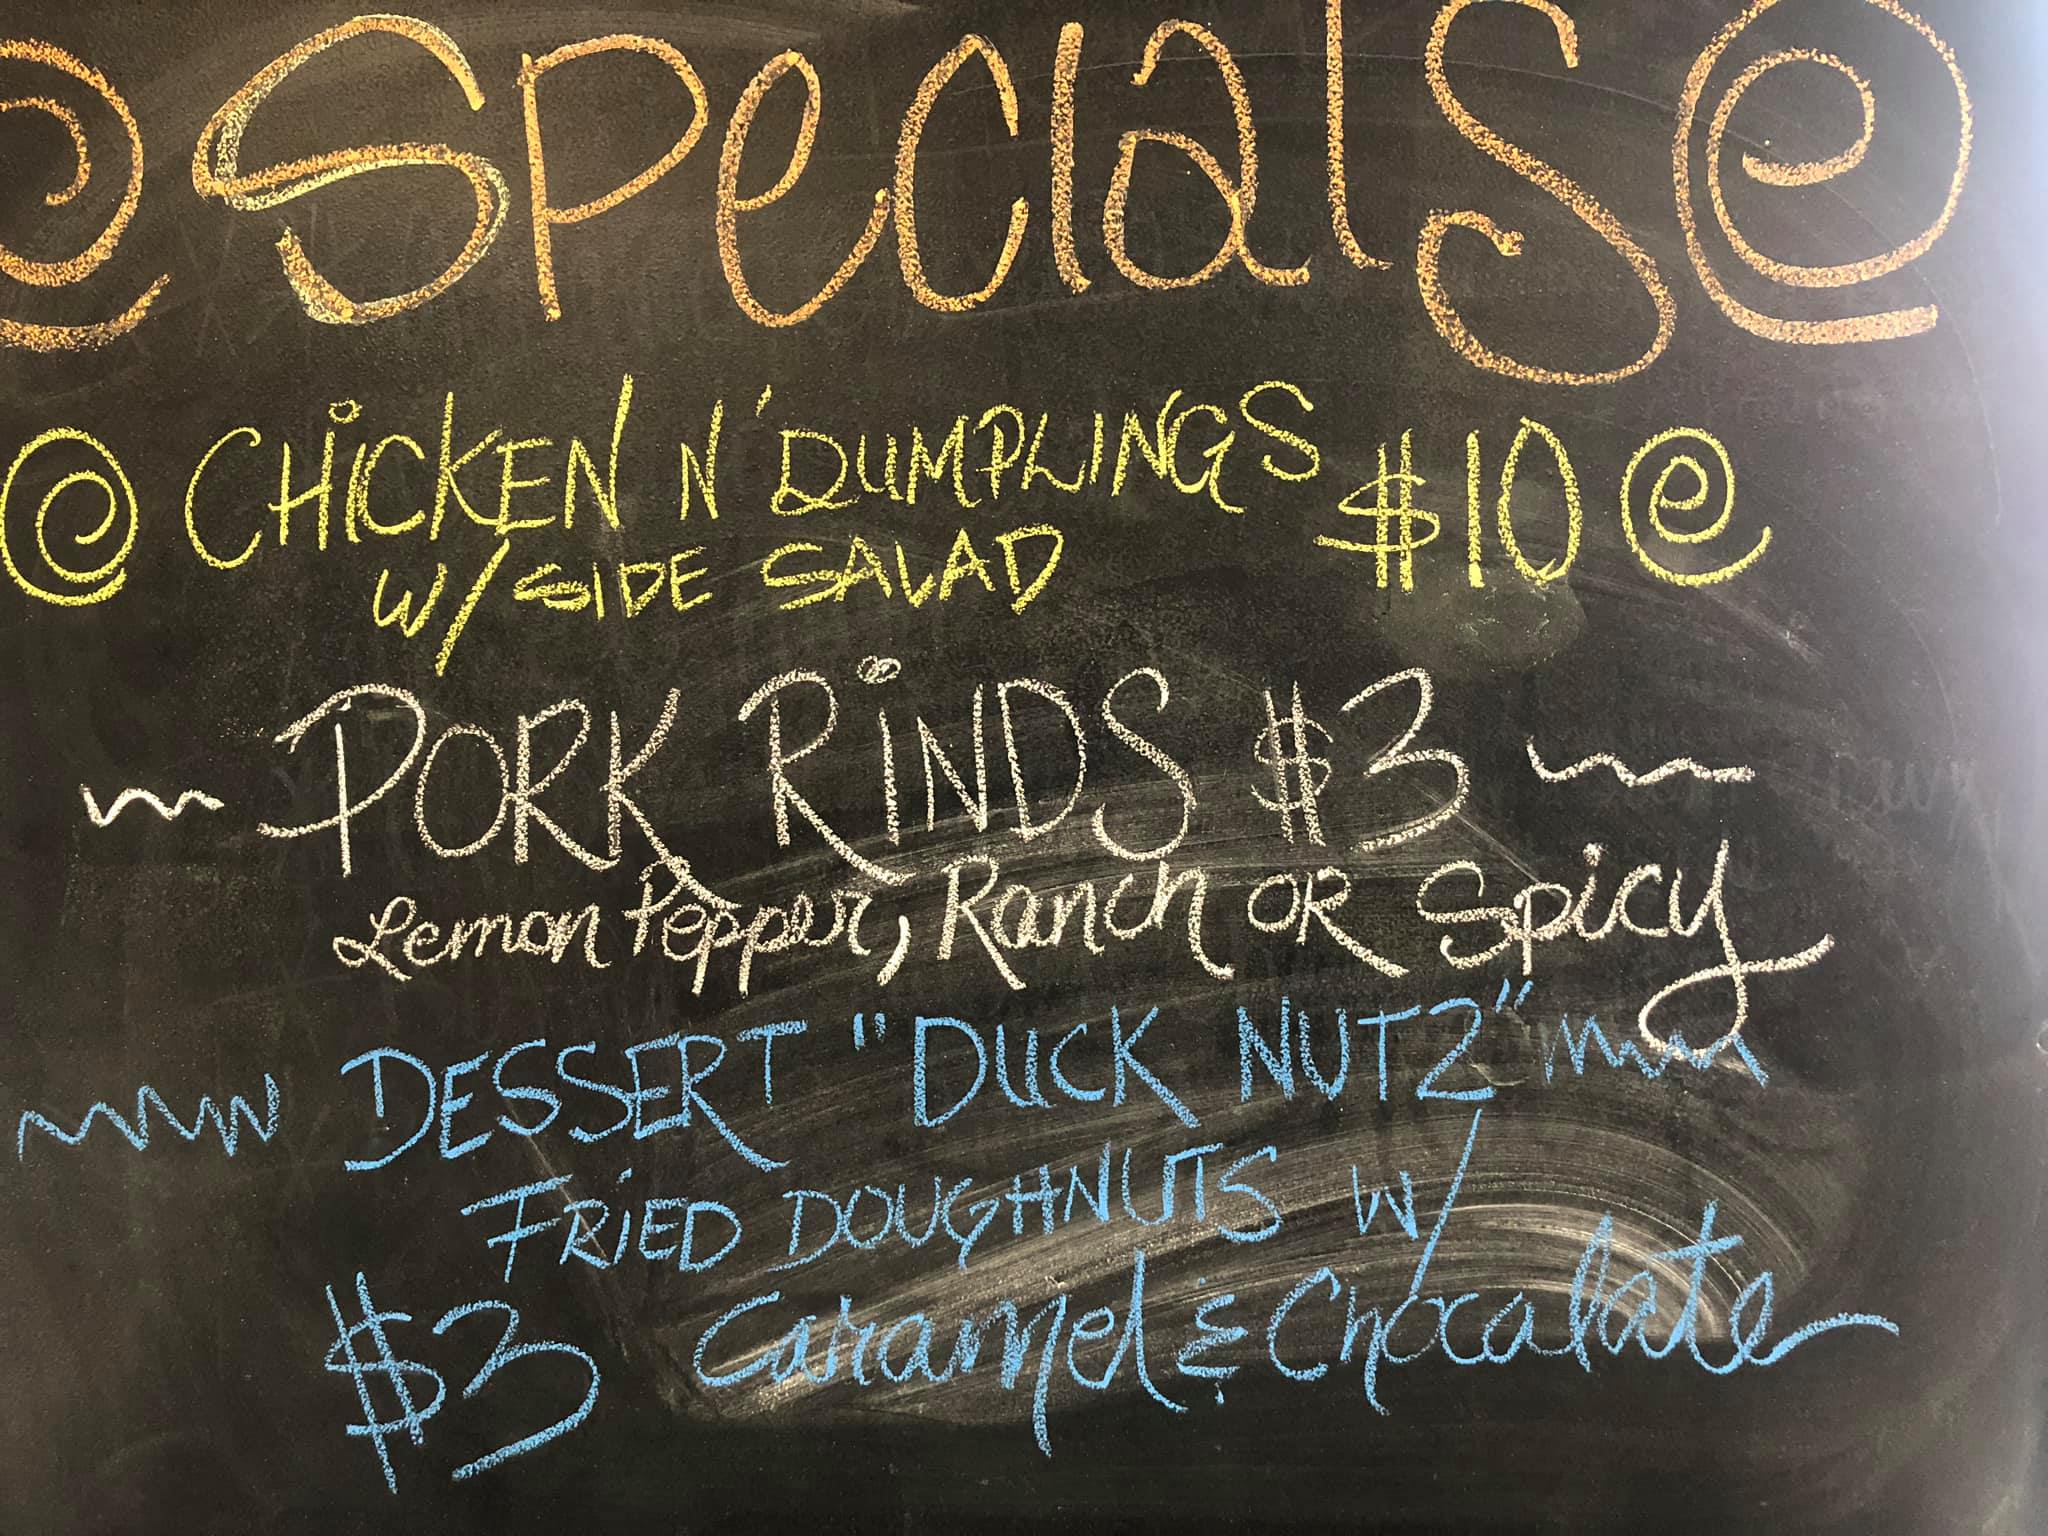 Specials
CHiCKEN N' DUMPLINGS $10
W/ SIDE SALAD
PORK RiNDS $3
Lemon Pepper, Ranch OR Spicy
DESSERT "DUCK NUTZ"
FRiED DOUGHNUTS W/
$3 Caramel & Chocolate